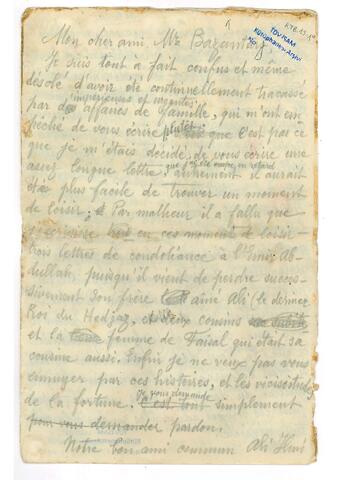 Mon cher ami Mr Bazantay,
Je suis tout à fait confus et même
désolé d'avoir été continuellement tracassé
impérieuses et urgentes
par des affaires de famille, qui m'ont em-
pêché de vous écrire plutôt; c'est pas ce
que je m'étais décidé de vous écrire une
assez longue lettre; autrement il aurait
été plus facile de trouver un moment
de loisir; Par malheur il a fallu que
en ces moments de loisir
trois lettres de condoléance à l'Emir Ab-
dullah, puisqu'il vient de perdre succes-
sivement son frère aîné Ali le dernier
Roi du Hedjaz, et deux cousins
et la femme de Faisal qui était sa
cousine aussi. Enfin je ne veux pas vous
ennuyer par ces histoires, et les vicissitudes
Je vous demande
de la fortune. c'est tout simplement
pour vous demander pardon.
Notre bon ami commun Ali